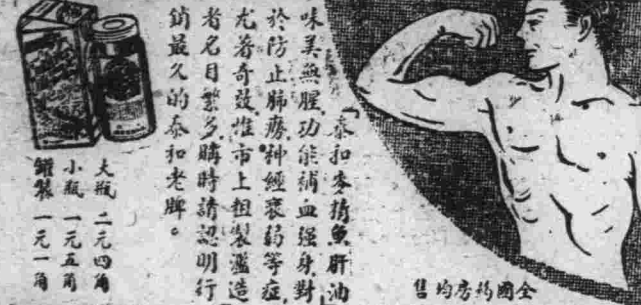 「泰和麥精魚肝油
味美無腥、功能補血强身、對
於防止肺癆、神經衰弱等症、
尤著奇效、惟市上粗製濫造
者名目繁多、購時請認明行
銷最久的泰和老牌。
大瓶 二元四角
小瓶 一元五角
罐裝 一元一角
全國药房均售